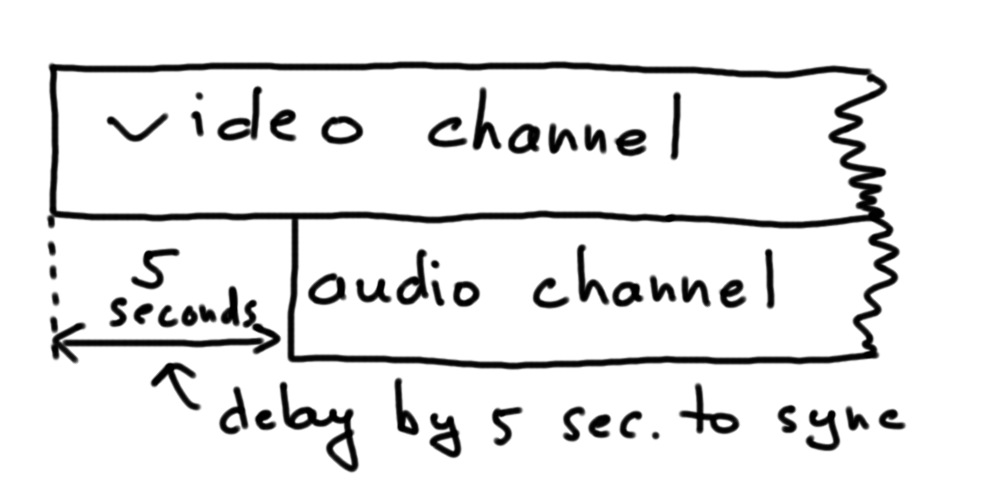 video channel
5
seconds
audio channel
delay by 5 sec. to sync